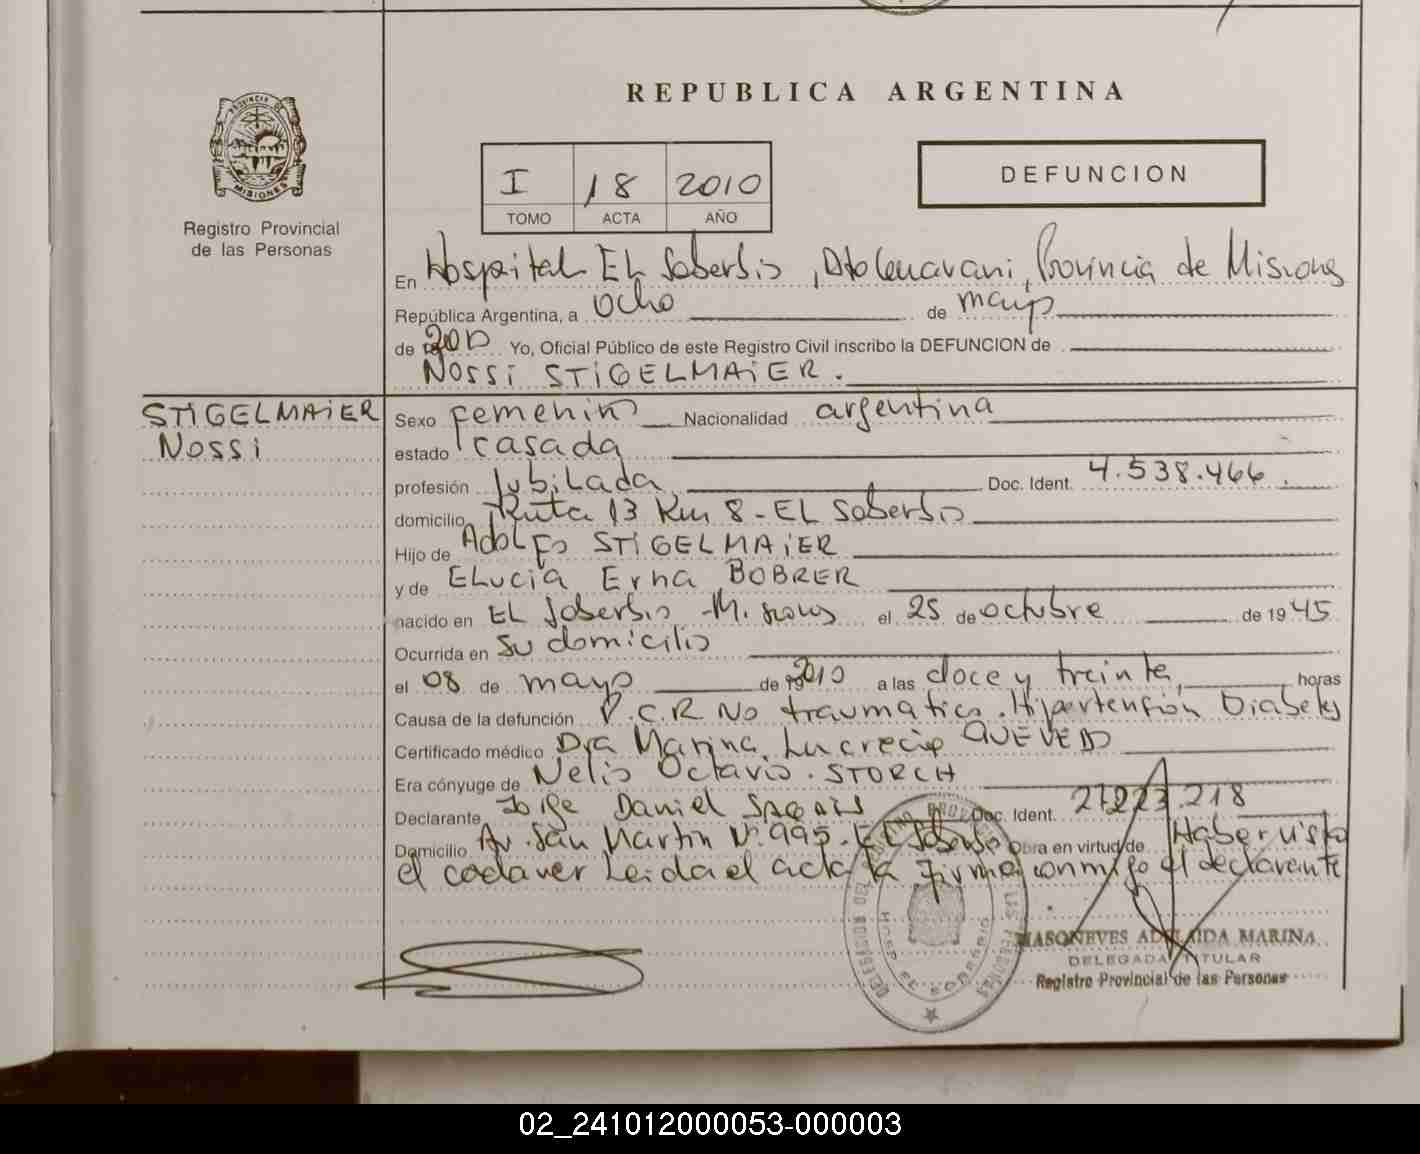 REPUBLICA ARGENTINA
PROVINCIA DE
MISIONES
Registro Provincial
de las Personas
I 18 2010
TOMO ACTA AÑO
DEFUNCION
En Hospital EL Soberbio, Dto Guarani, Provincia de Misiones
República Argentina, a ocho de mayo
de 2010 Yo, Oficial Público de este Registro Civil inscribo la DEFUNCION de
NOSSi STiGELMAiER.
STiGELMAiER
NOSSi
Sexo femenino Nacionalidad argentina
estado casada
profesión Jubilada Doc. Ident. 4.538.466
domicilio Ruta 13 Km 8 - EL Soberbio
Hijo de Adolfo STiGELMAiER
y de ELucia Erna BOBRER
nacido en EL Soberbio - Misiones el 25 de octubre de 1945
Ocurrida en su domicilio
el 08 de mayo de 2010 a las doce y treinta horas
Causa de la defunción P.C.R No traumatico. Hipertensión Diabetes
Certificado médico Dra Marina Lucrecia QUEVEDO
Era cónyuge de Nelio Octavio. STORCH
Declarante Jorge Daniel Doc. Ident. 27223.218
Domicilio Av. San Martin Nº 995 - EL Soberbio Obra en virtud de Haber visto
el cadaver Leida el acta la firma conmigo el declarante
MASONEVES ADELAIDA MARINA
DELEGADA TITULAR
Registro Provincial de las Personas
02_241012000053-000003